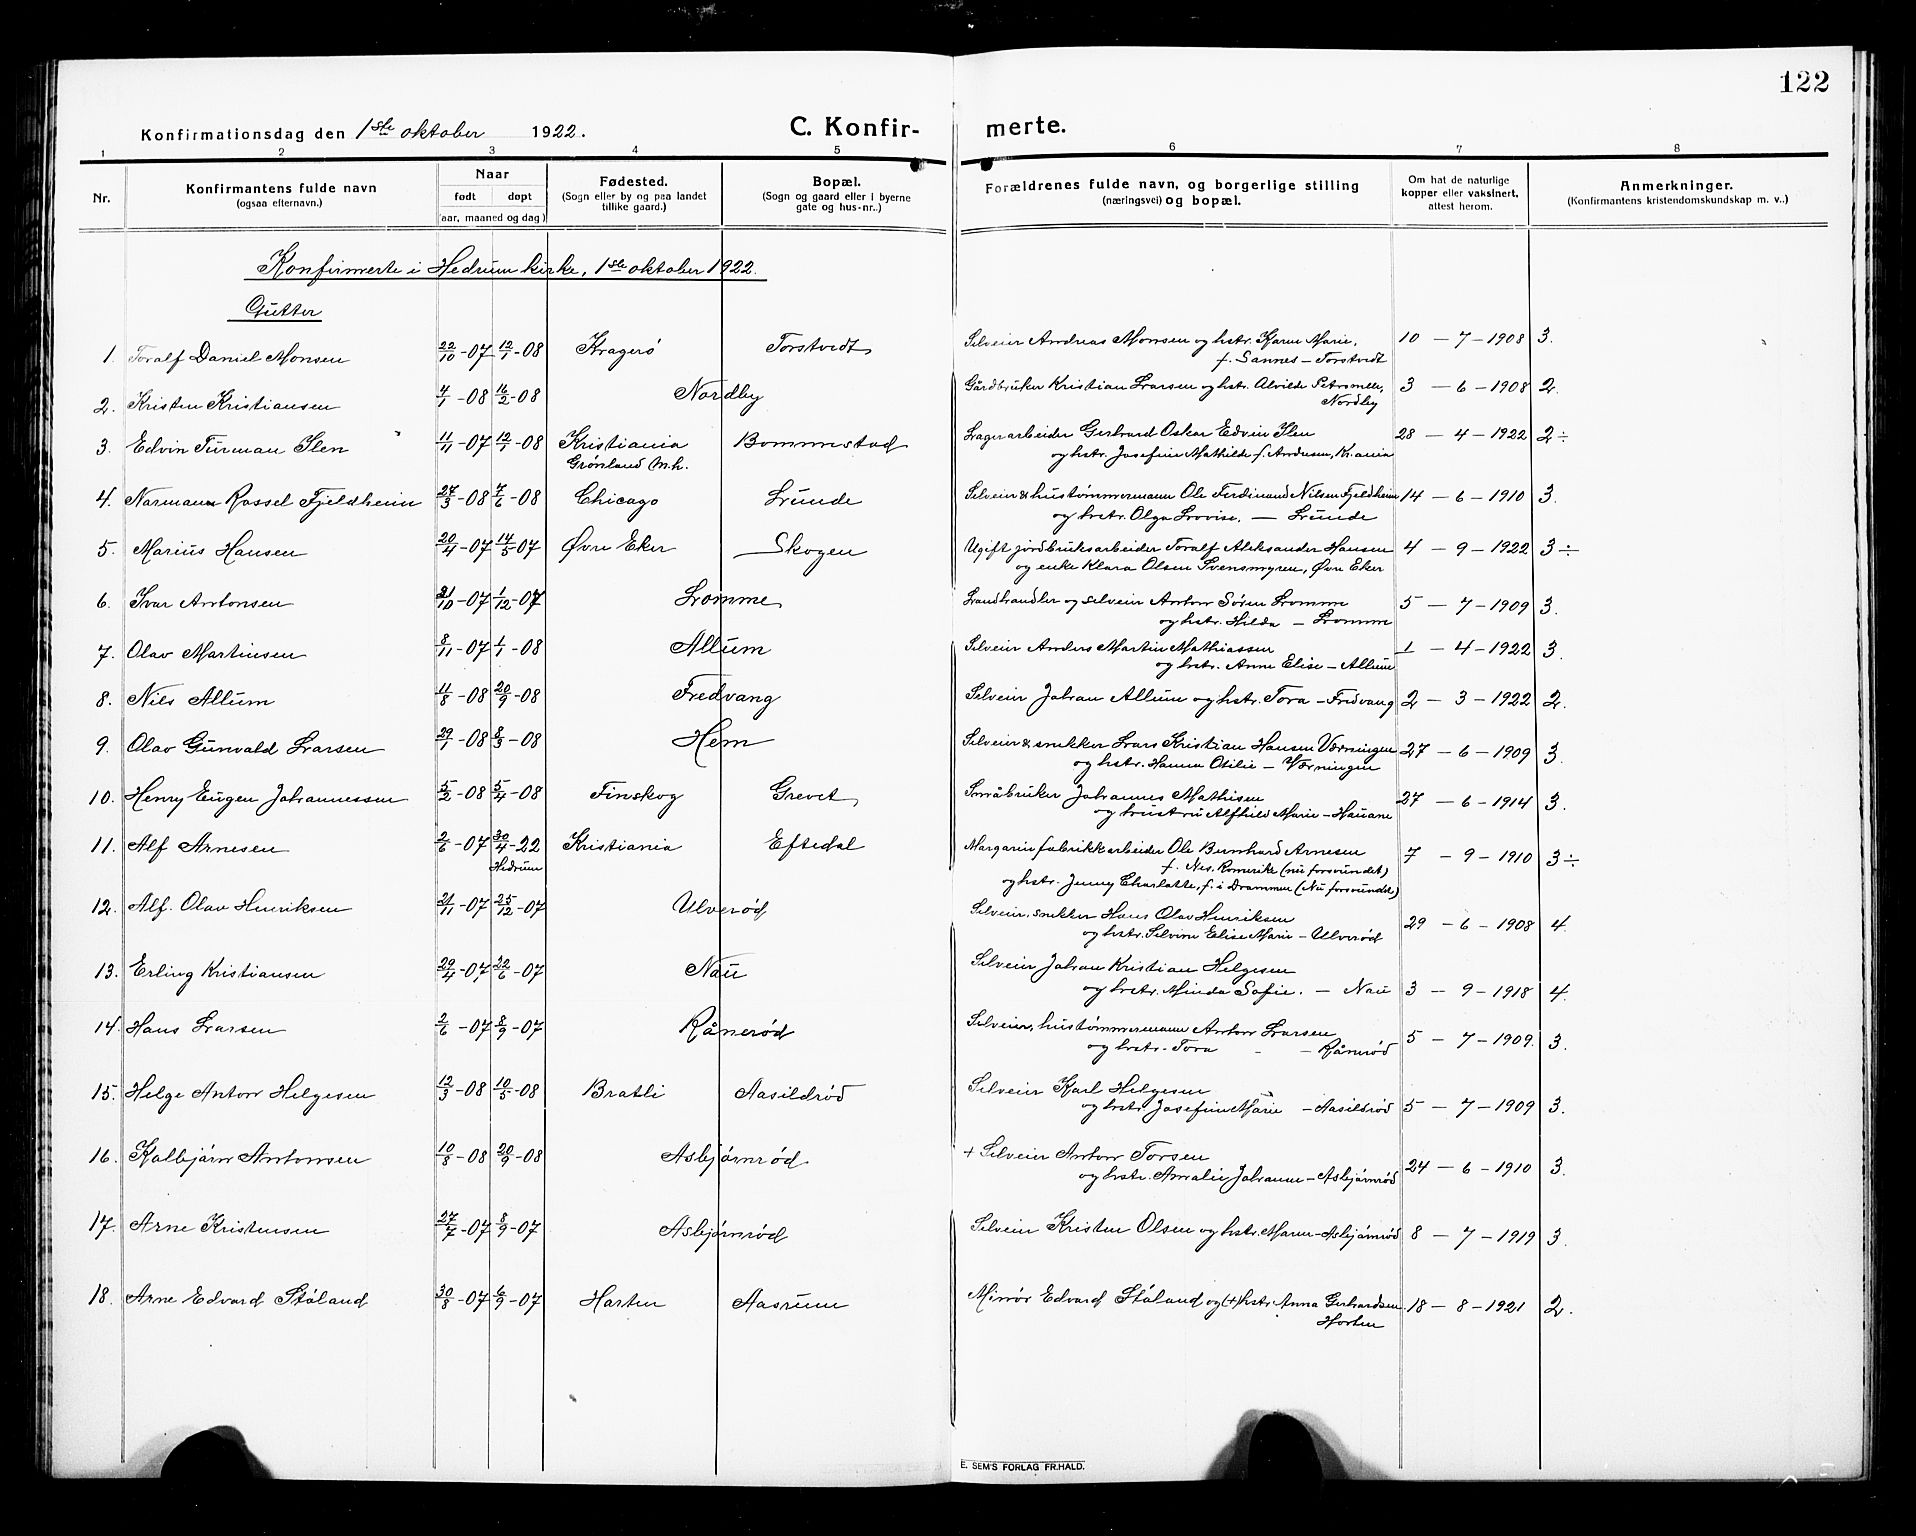 122
Konfirmationsdag den 1ste oktober 1922. C. Konfir- merte.
1 2 3 4 5 6 7 8
Nr. Konfirmantens fulde navn (ogsaa efternavn.) Naar født døpt (aar, maaned og dag) Fødested. (Sogn eller by og paa landet tillike gaard.) Bopæl. (Sogn og gaard eller i byerne gate og hus-nr..) Forældrenes fulde navn, og borgerlige stilling (næringsvei) og bopæl. Om hat de naturlige kopper eller vaksinert, attest herom. Anmerkninger. (Konfirmantens kristendomskundskap m. v..)
Konfirmerte i Hedrum kirke, 1ste oktober 1922.
Gutter
1. Toralf Daniel Monsen 22/10-07 12/1-08 Kragerø Torstvedt Selveier Andreas Monsen og hstr. Karen Marie, 10 - 7 - 1908 3.
f. Sannes - Torstvedt
2. Kristen Kristiansen 4/1-08 16/2-08 Nordby Gårdbruker Kristian Larsen og hstr. Alvilde Petromelle, 3 - 6 - 1908 2.
Nordby
3. Edvin Turman Ilen 11/11-07 12/1-08 Kristiania Bommestad Lagerarbeider Gerhard Oskar Edvin Ilen 28 - 4 - 1922 2÷
Grønland m.h. og hstr. Josefine Mathilde f. Andresen, Kr.ania
4. Narmann Rossel Fjeldheim 27/3-08 7/6-08 Chicago Lunde Selveier & hustømmermann Ole Ferdinand Nilsen Fjeldheim 14 - 6 - 1910 3.
og hstr. Olga Lovise. - Lunde
5. Marius Hansen 20/4-07 14/5-07 Øvre Eker Skogen Ugift jordbruksarbeider Toralf Aleksander Hansen 4 - 9 - 1922 3÷
og enke Klara Olsen Svensmyren, Øvre Eker
6. Ivar Antonsen 21/10-07 1/12-07 Lomme Landhandler og selveier Anton Søren Lomme 5 - 7 - 1909 3.
og hstr. Hilda - Lomme
7. Olav Martinsen 8/11-07 1/1-08 Allum Selveier Anders Martin Mathiassen 1 - 4 - 1922 3.
og hstr. Anne Elise - Allum
8. Nils Allum 11/8-08 20/9-08 Fredvang Selveier Johan Allum og hstr. Tora - Fredvang 2 - 3 - 1922 2.
9. Olav Gunvald Larsen 29/1-08 8/3-08 Hem Selveier & snekker Lars Kristian Hansen Værningen 27 - 6 - 1909 3.
og hstr. Hanna Otilie - Værningen
10. Henry Eugen Johannessen 5/2-08 5/4-08 Finskog Grevet Småbruker Johannes Mathisen 27 - 6 - 1914 3.
og hustru Alfhild Marie - Hauane
11. Alf Arnesen 2/6-07 30/4-22 Kristiania Eftedal Margarinfabrikkarbeider Ole Bernhard Arnesen 7 - 9 - 1910 3÷
Hedrum f. Nes, Romerike (nu forsvundet)
og hstr. Jenny Charlotte, f. i Drammen (Nu forsvundet)
12. Alf. Olav Henriksen 21/11-07 25/12-07 Ulverød Selveier, snekker Hans Olav Henriksen 29 - 6 - 1908 4.
og hstr. Selvine Elise Marie - Ulverød
13. Erling Kristiansen 29/4-07 22/6-07 Nau Selveier Johan Kristian Helgesen
og hstr. Minda Sofie. - Nau 3 - 9 - 1918 4.
14. Hans Larsen 2/6-07 8/9-07 Rånerød Selveier, hustømmermann Anton Larsen 5 - 7 - 1909. 3.
og hstr. Tora - - Rånerød
15. Helge Anton Helgesen 12/3-08 10/5-08 Bratli Aasildrød Selveier Karl Helgesen
og hstr. Josefine Marie - Aasildrød 5 - 7 - 1909 3.
16. Kolbjørn Antonsen 10/8-08 20/9-08 Asbjørnrød + Selveier Anton Torsen 24 - 6 - 1910 3.
og hstr. Amalie Johanne - Asbjørnrød
17. Arne Kristensen 27/7-07 8/9-07 Asbjørnrød Selveier Kristen Olsen og hstr. Maren - Asbjørnrød 8 - 7 - 1919 3.
18. Arne Edvard Støland 30/8-07 6/9-07 Horten Aasrum Minør Edvard Støland og (+) hstr. Anna Gerhardsen 18 - 8 - 1921 2.
Horten
E. SEM'S FORLAG FR.HALD.